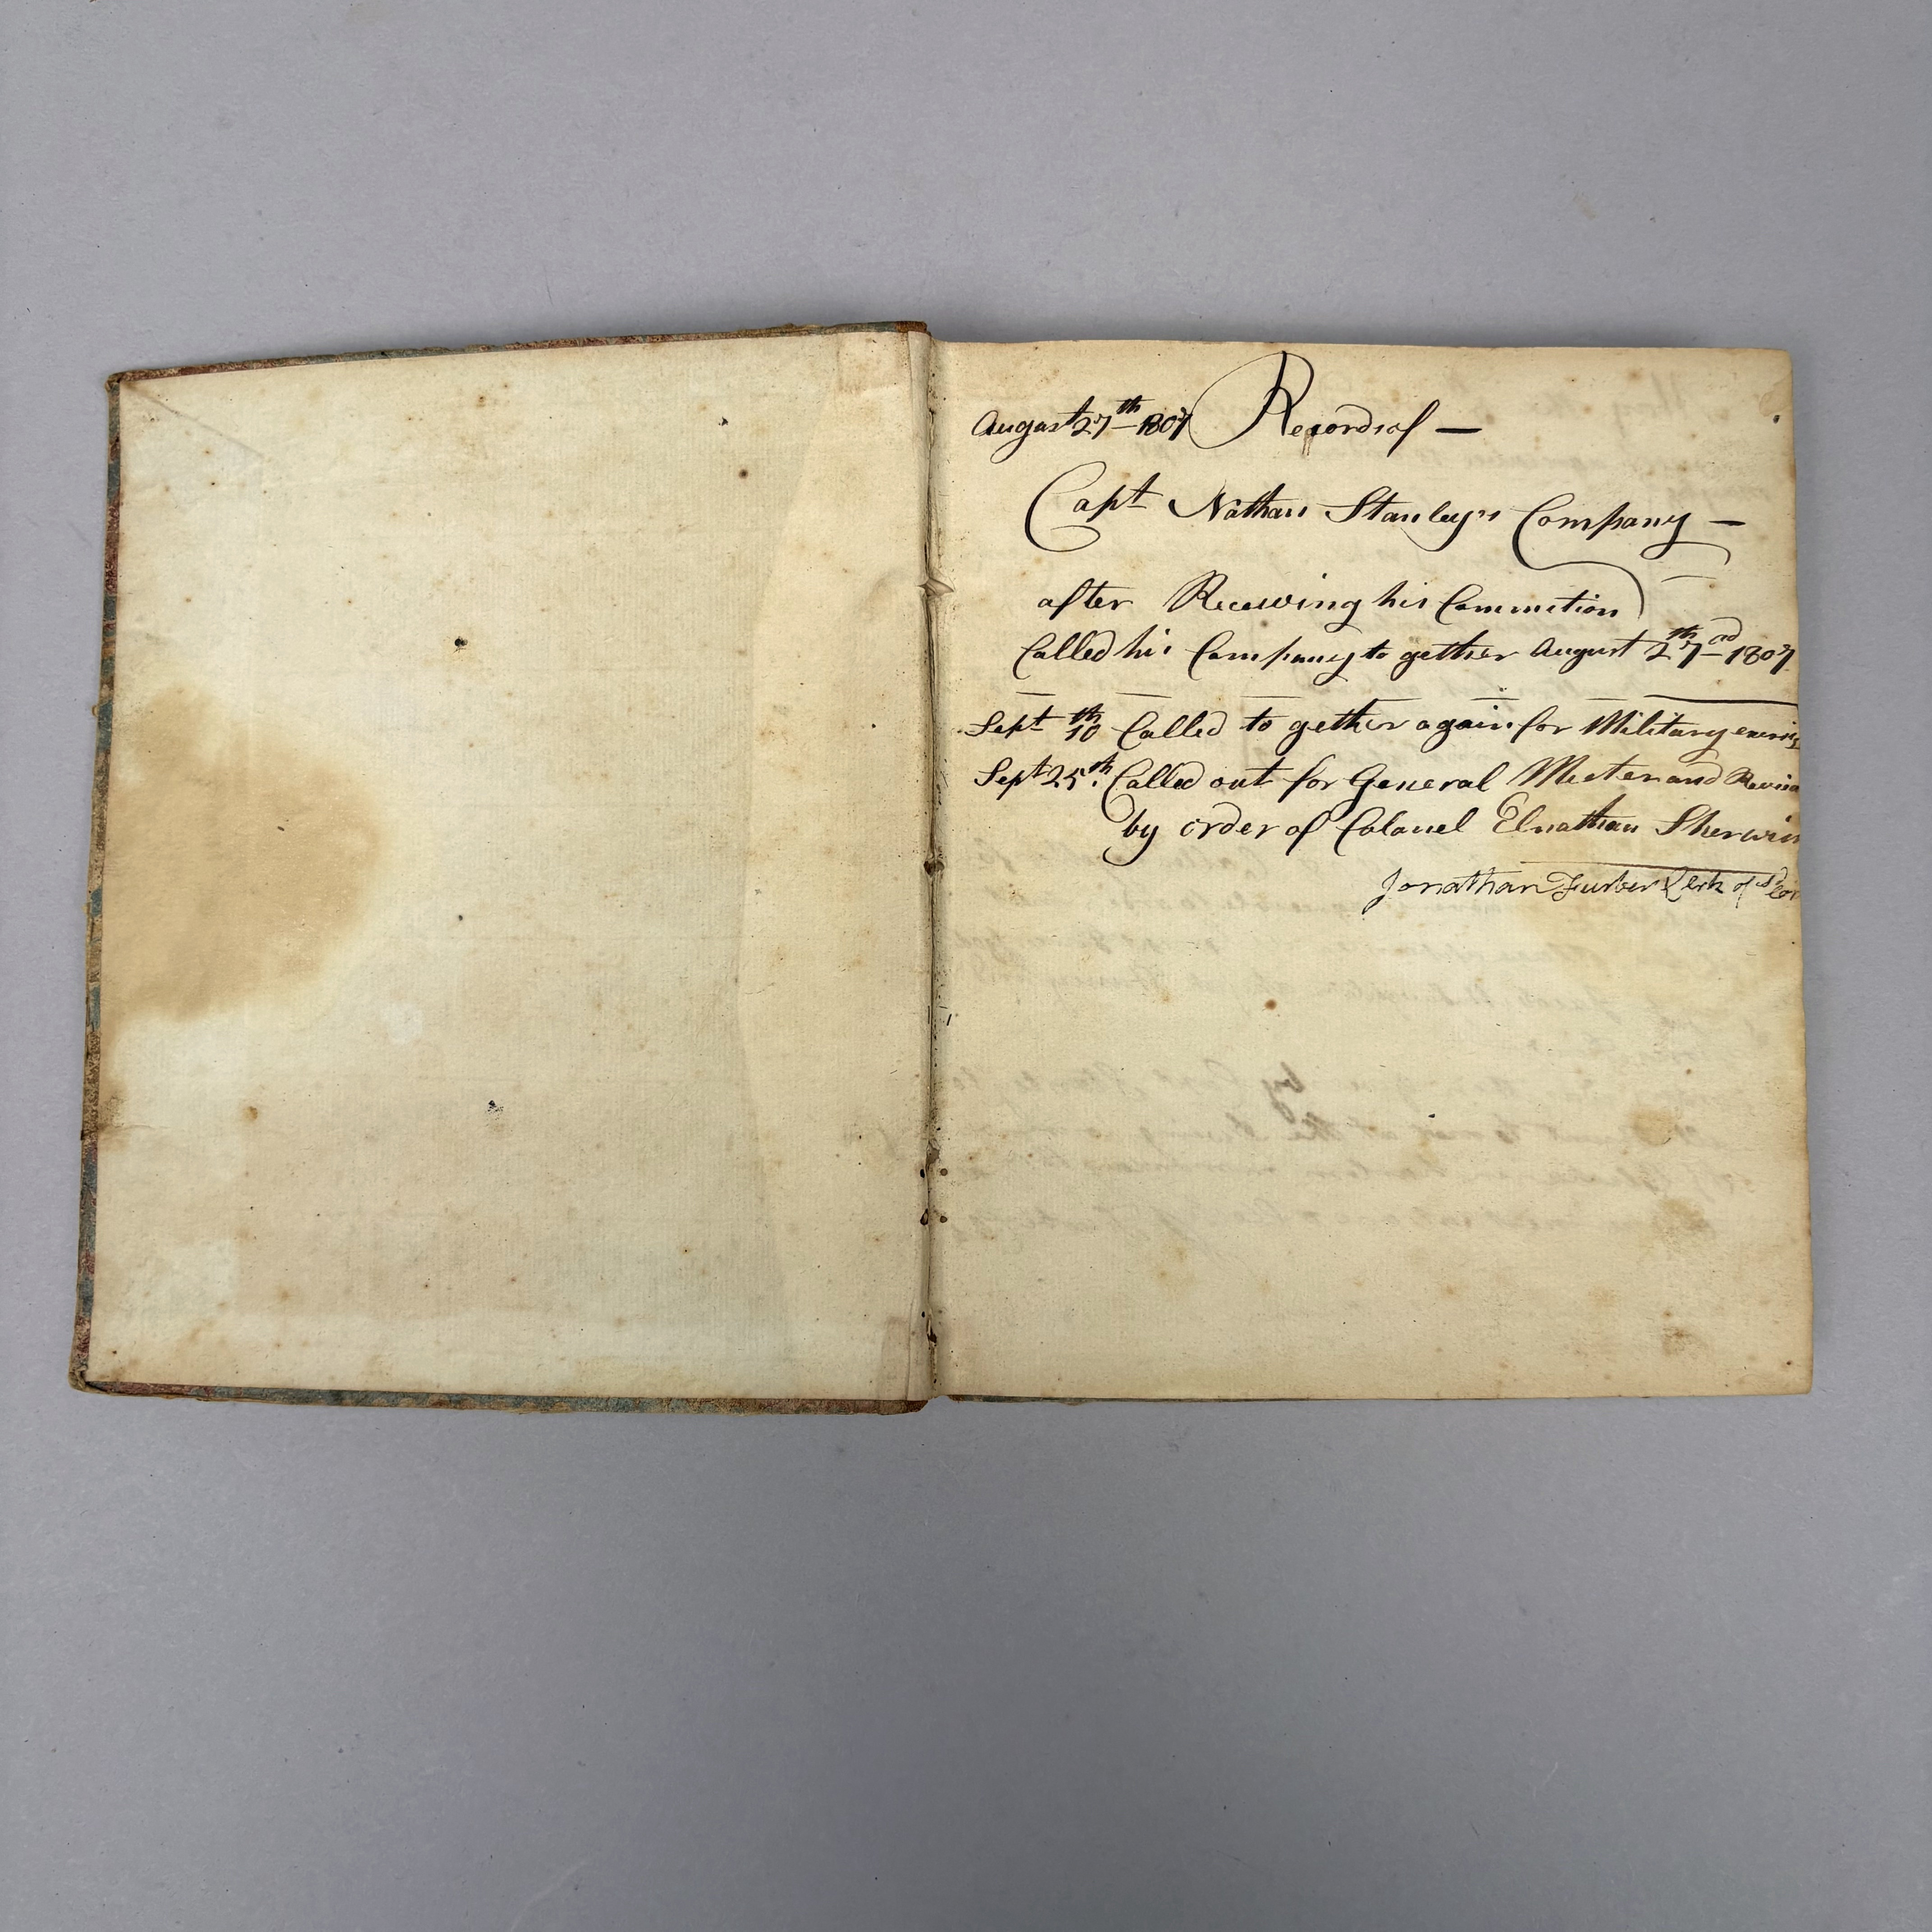 August 27th 1807 Records of —
Capt Nathan Stanley's Company —
after Receiving his Commition
Called his Company to gether August 27th 1807
Sept 10th Called to gether again for Military
Sept 25th. Called out for General Muster and
by order of Colonel Elnathan Sherwin
Jonathan Furber Clerk of sd